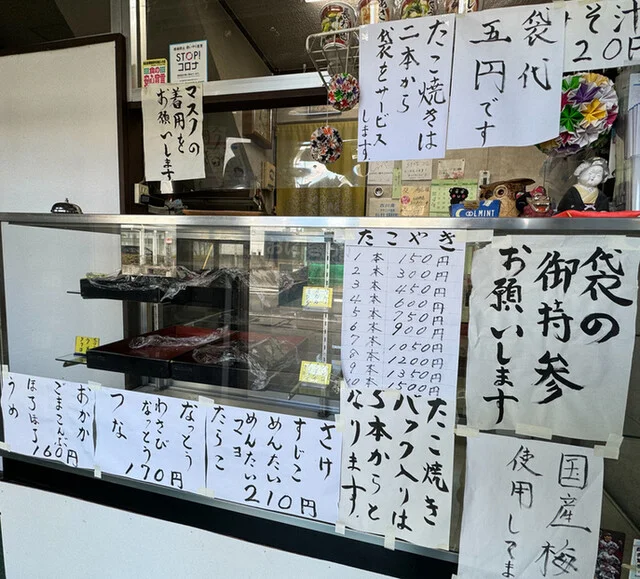 STOP!
コロナ
マスクの
着用を
お願いします
たこ焼きは
二本から
袋をサービス
します
袋代
五円です
そ汁
20円
COOLMINT
たこやき
1本 150円
2本 300円
3本 450円
4本 600円
5本 750円
6本 900円
7本 1050円
8本 1200円
9本 1350円
10本 1500円
たこ焼き
パック入りは
5本からと
なります
袋の
御持参
お願いします
国産梅
使用してま
さけ
すじこ
めんたい
めんたいマヨ
たらこ
210円
なっとう
わさびなっとう
つな
170円
おかか
ごまこんぶ
ほろほろ
うめ
160円